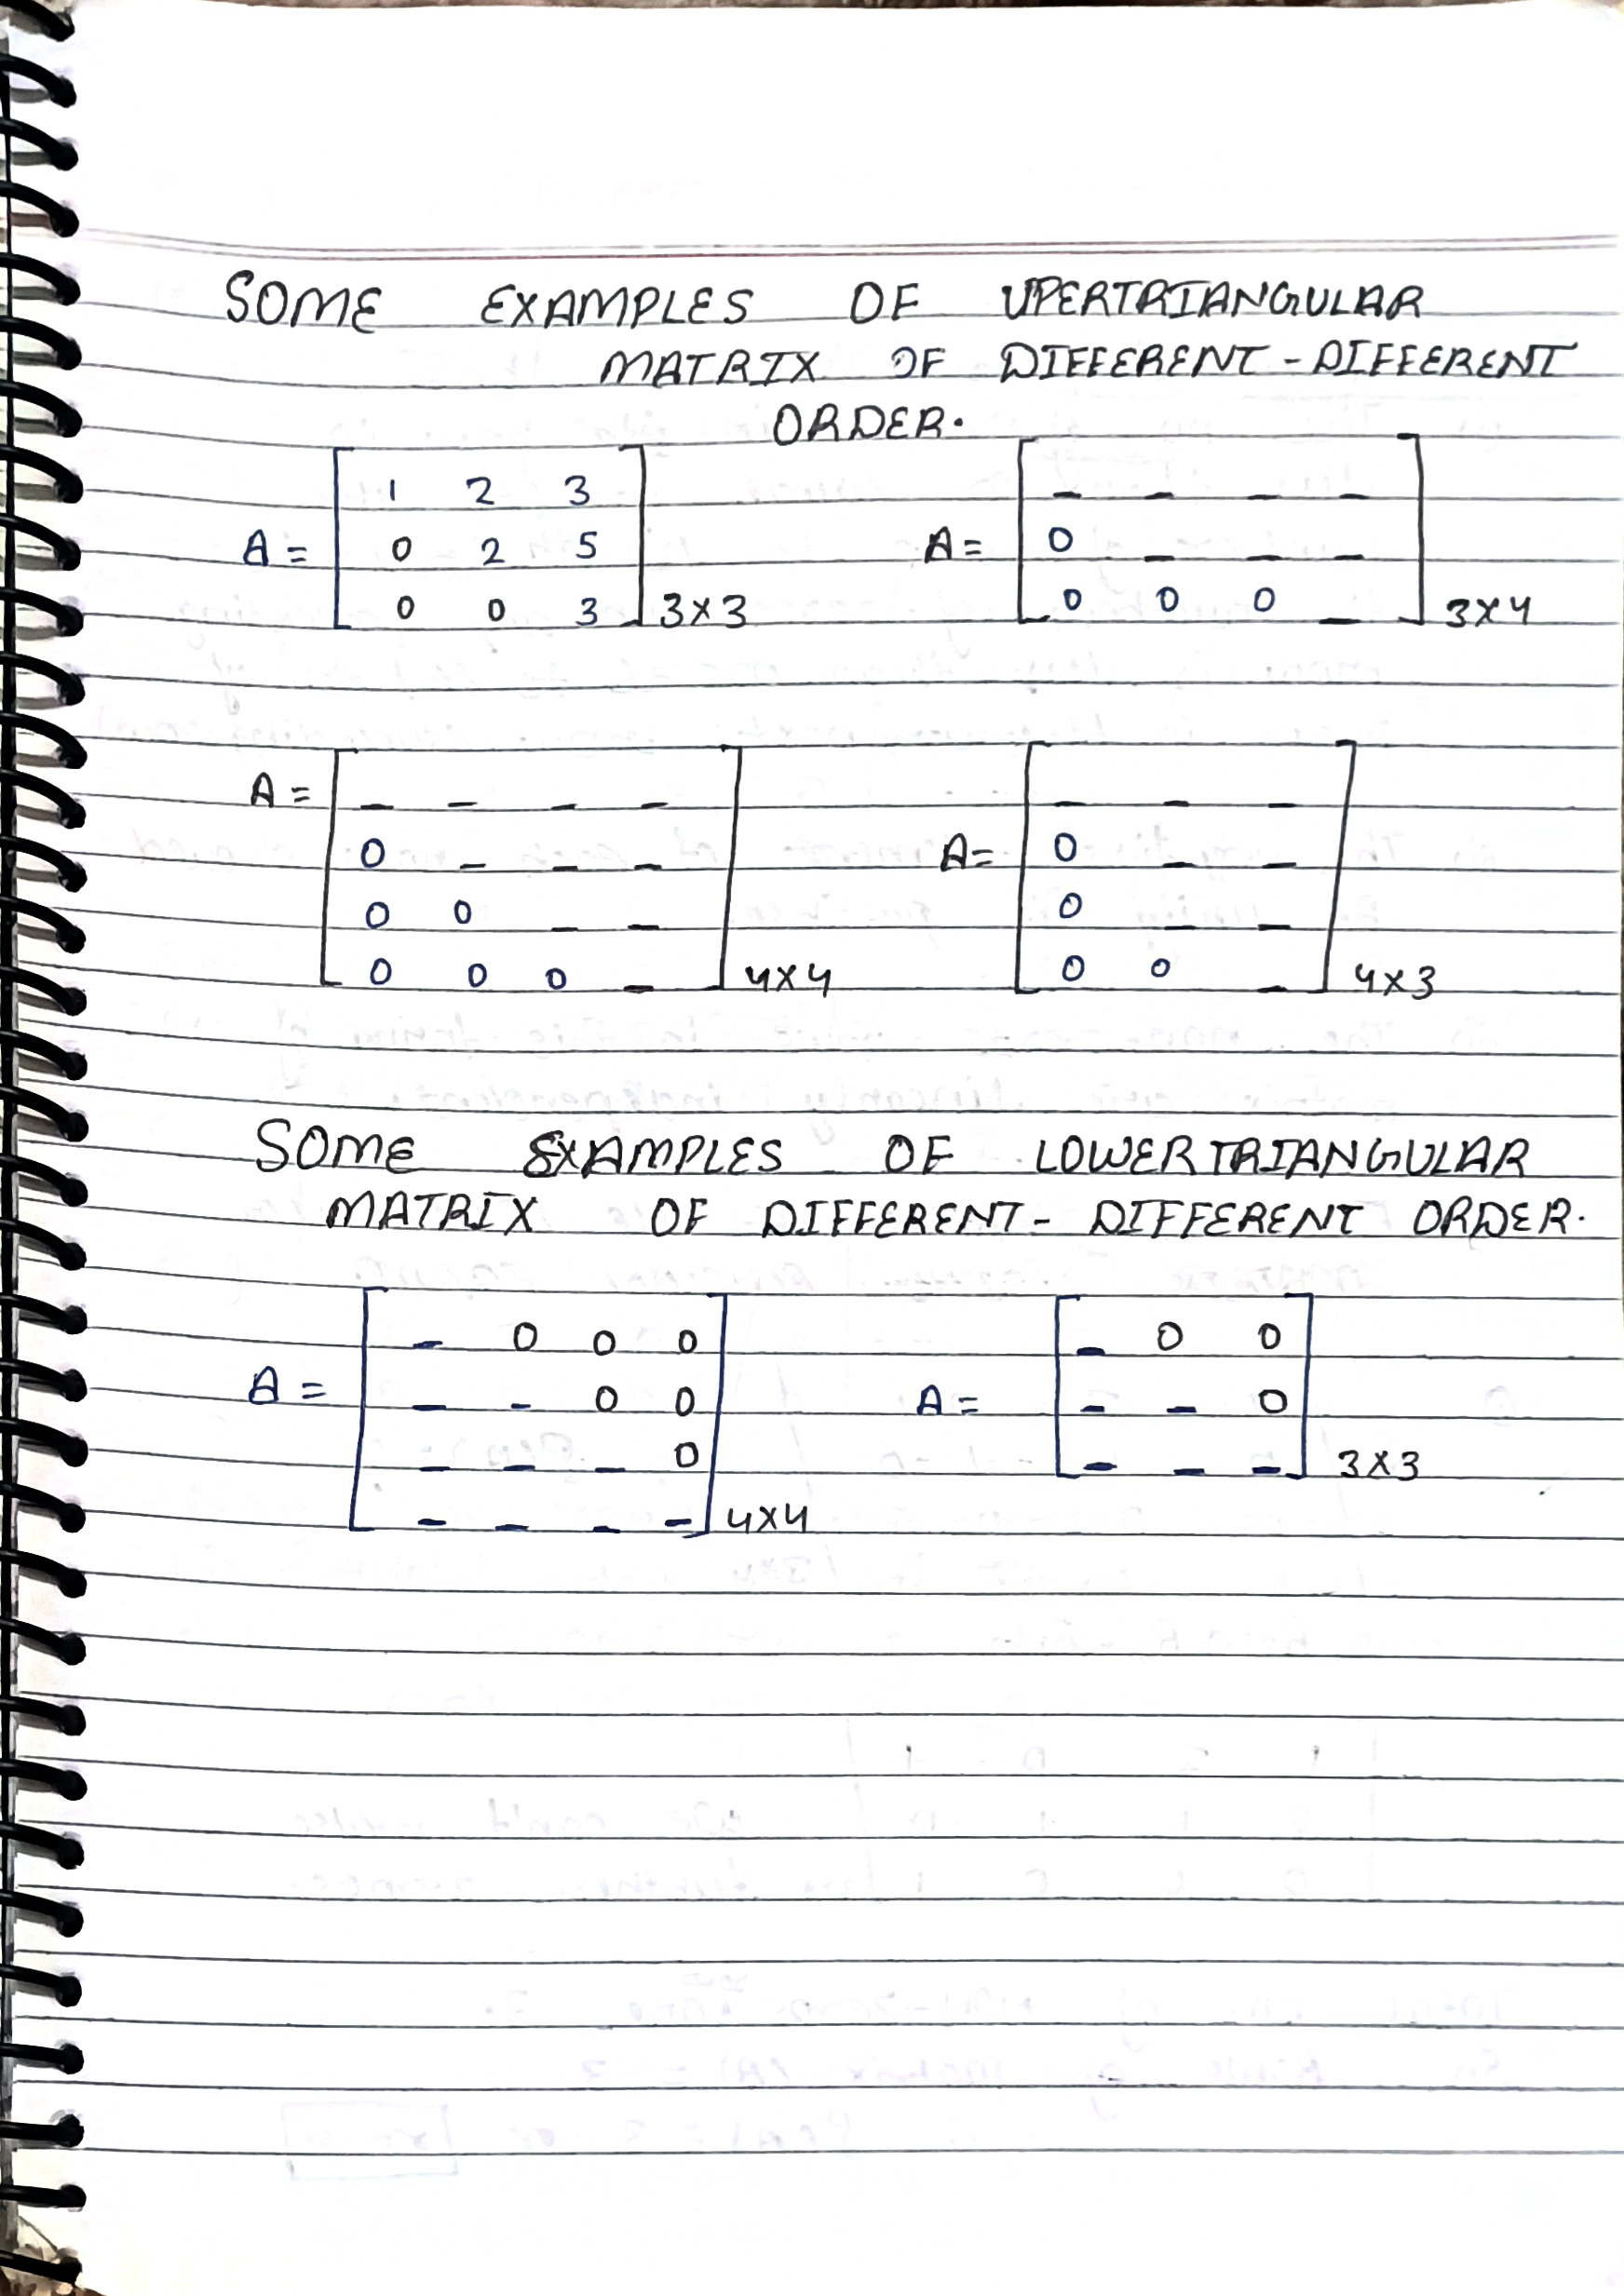 SOME EXAMPLES OF UPERTRIANGULAR
MATRIX OF DIFFERENT-DIFFERENT
ORDER.
1 2 3
A = 0 2 5
0 0 3 3×3
_ _ _ _
A = 0 _ _ _
0 0 0 _ 3×4
A = _ _ _ _
0 _ _ _
0 0 _ _
0 0 0 _ 4×4
_ _ _
A = 0 _ _
0 _ _
0 0 _ 4×3
SOME EXAMPLES OF LOWERTRIANGULAR
MATRIX OF DIFFERENT-DIFFERENT ORDER.
_ 0 0 0
A = _ _ 0 0
_ _ _ 0
_ _ _ _ 4×4
_ 0 0
A = _ _ 0
_ _ _ 3×3